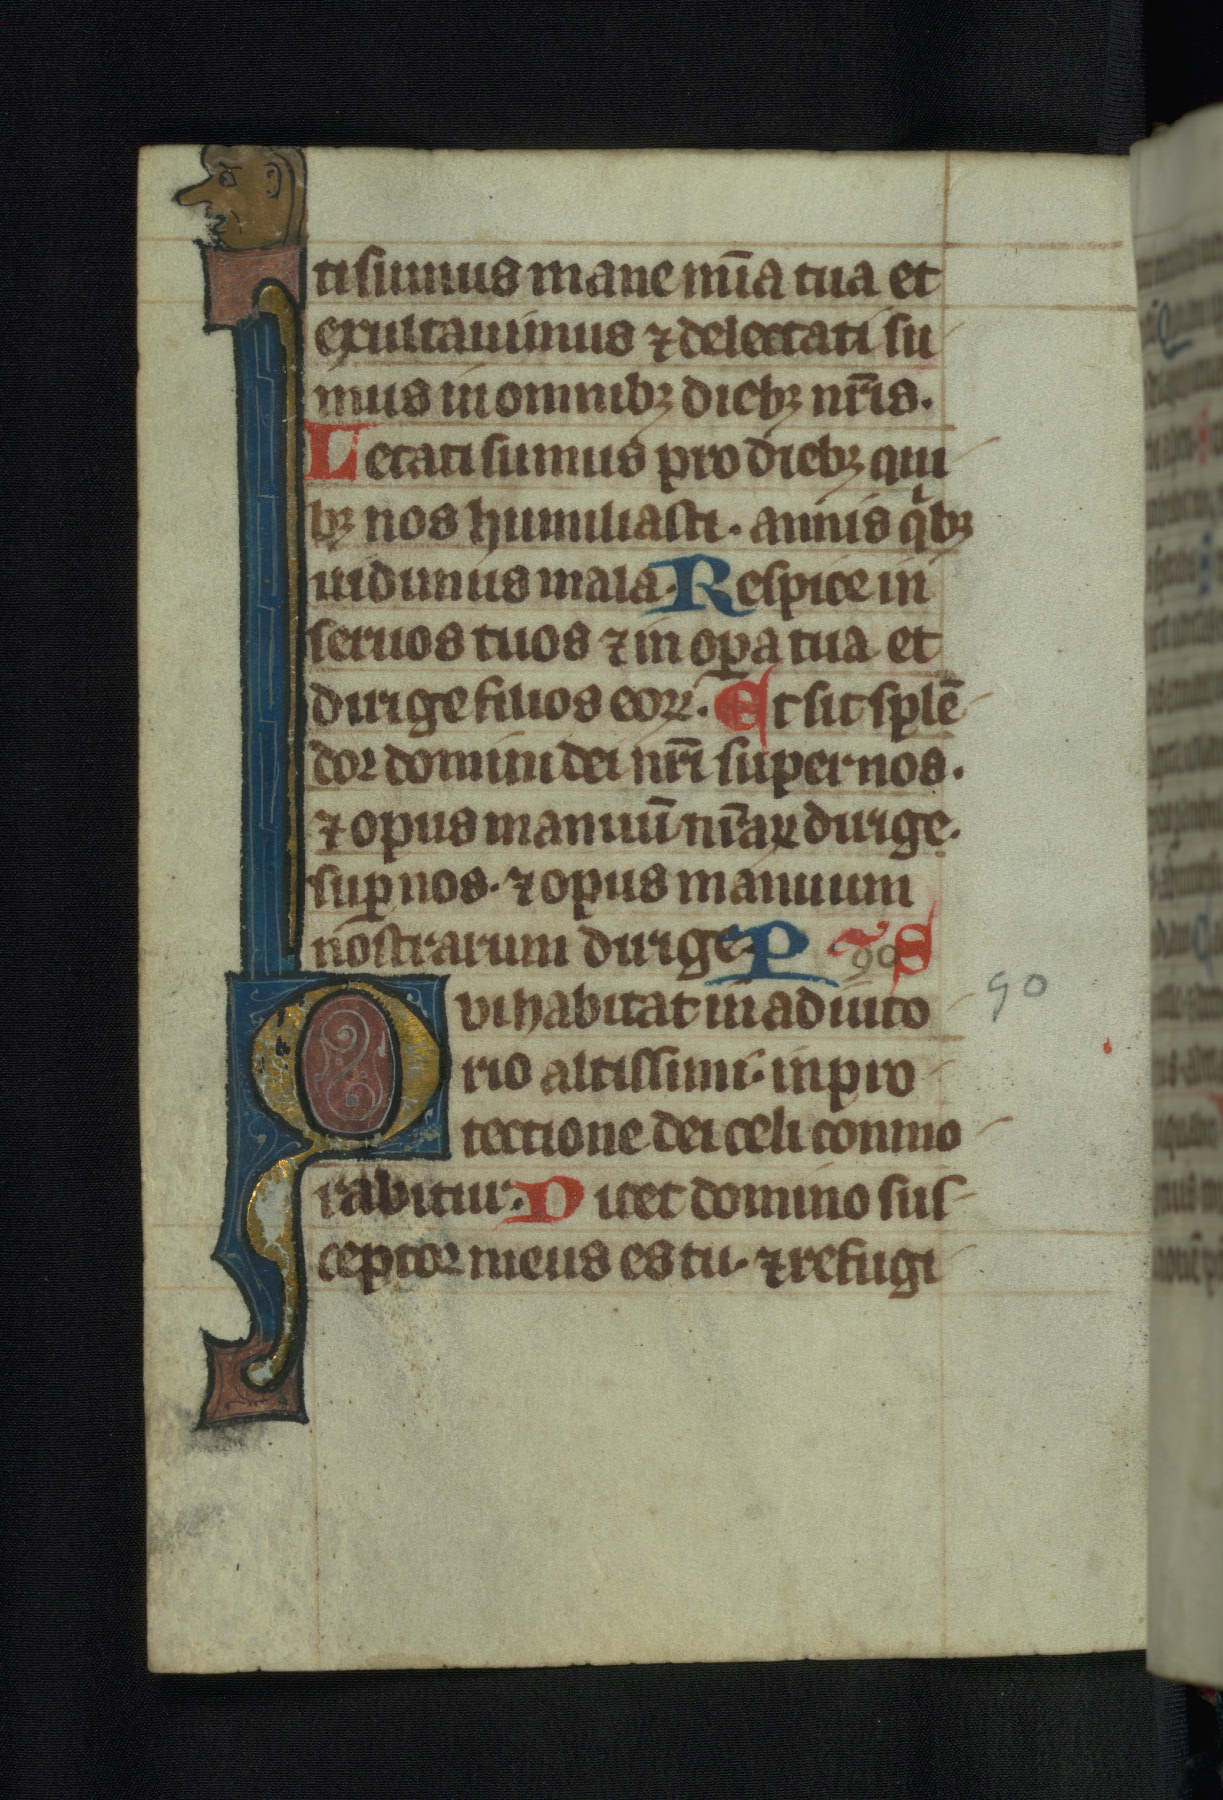 ti sumus mane mīa tua et
exultauimus ⁊ delectati su
mus in omnibꝫ diebꝫ nr̄is.
Letati sumus pro diebꝫ qui
bꝫ nos humiliasti. annis qͥbꝫ
uidimus mala. Respice in
seruos tuos ⁊ in oꝑa tua et
dirige filios eoꝝ. Et sit splē
dor domini dei nr̄i super nos.
⁊ opus manuū nr̄aꝝ dirige.
suꝑ nos. ⁊ opus manuum
nostrarum dirige. P S 90
Qui habitat in adiuto 90
rio altissimi. in pro
tectione dei celi conmo
rabitur. Dicet domino sus
ceptor meus es tu. ⁊ refugi